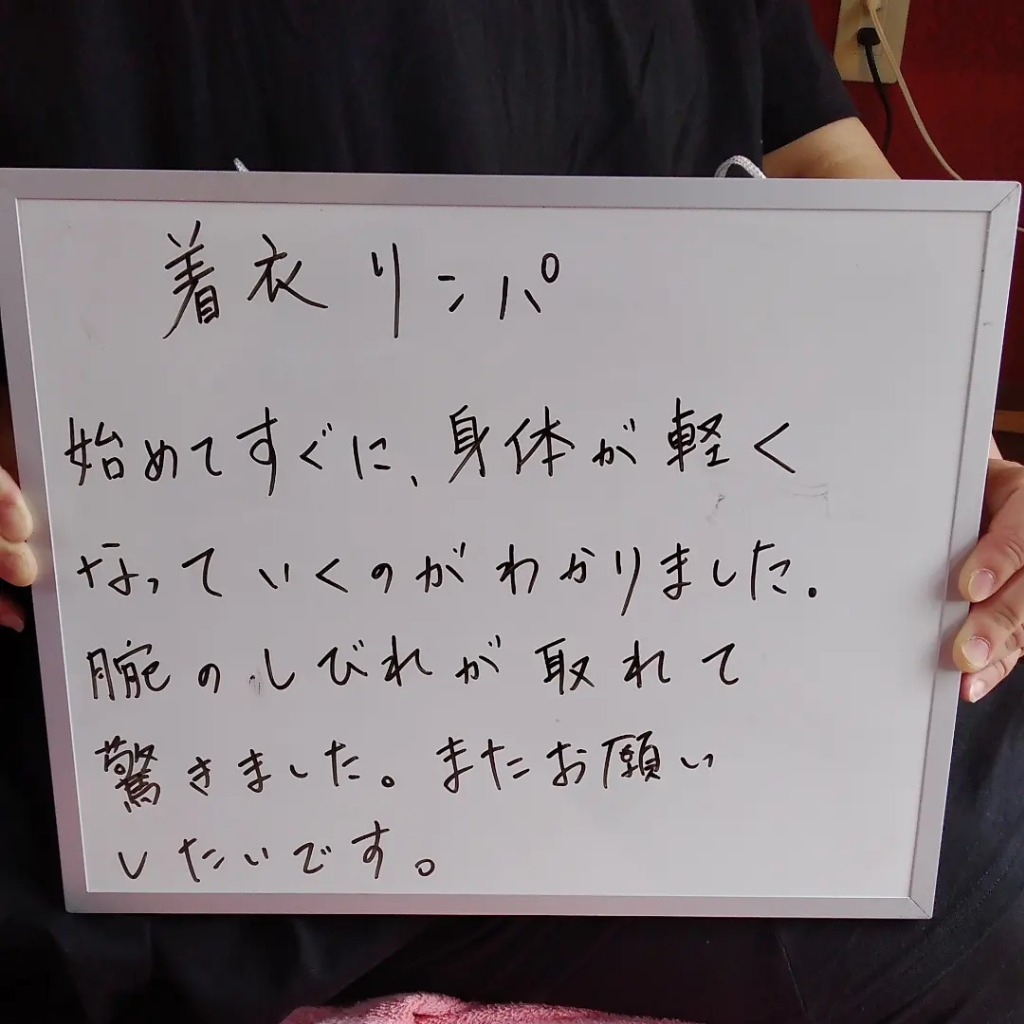 着衣リンパ
始めてすぐに、身体が軽く
なっていくのがわかりました.
腕のしびれが取れて
驚きました。またお願い
したいです。